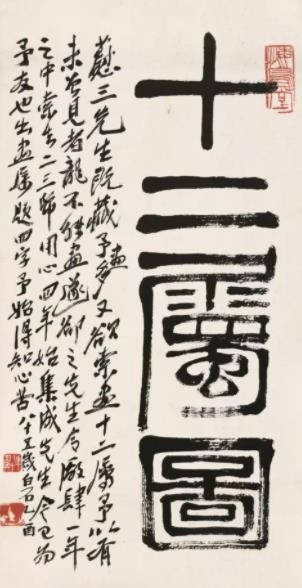 十二屬圖
蕙三先生既藏予畫多又欲索畫十二屬予以有
未曾見者龍不能畫遂卻之先生令廠肆一年
之中索去二三幅用心四年始集成先生今已為
予友也出畫屬題四字予始得知心苦八十五歲白石乙酉